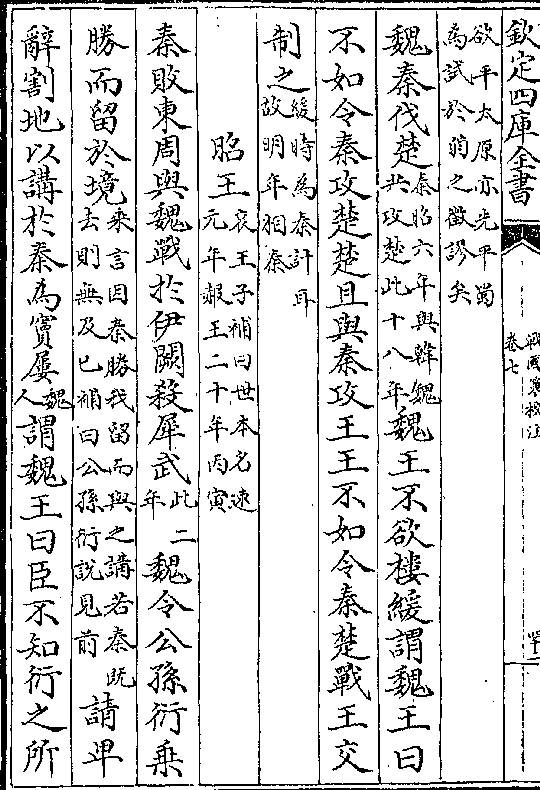 欽定四庫全書
戰國策校注
卷七
欲平太原亦先平蜀
為試於弱之徵謬矣
魏秦伐楚秦昭六年與韓魏共攻楚此十八年魏王不欲樓緩謂魏王曰
不如令秦攻楚楚且與秦攻王王不如令秦楚戰王交
制之緩時為秦計耳故明年相秦
昭王哀王子補曰世本名遫元年赧王二十年丙寅
秦敗東周與魏戰於伊闕殺犀武此二年魏令公孫衍乗
勝而留於境乗言因秦勝我留而與之講若秦既去則無及已補曰公孫衍說見前請卑
辭割地以講於秦為竇屢魏人謂魏王曰臣不知衍之所